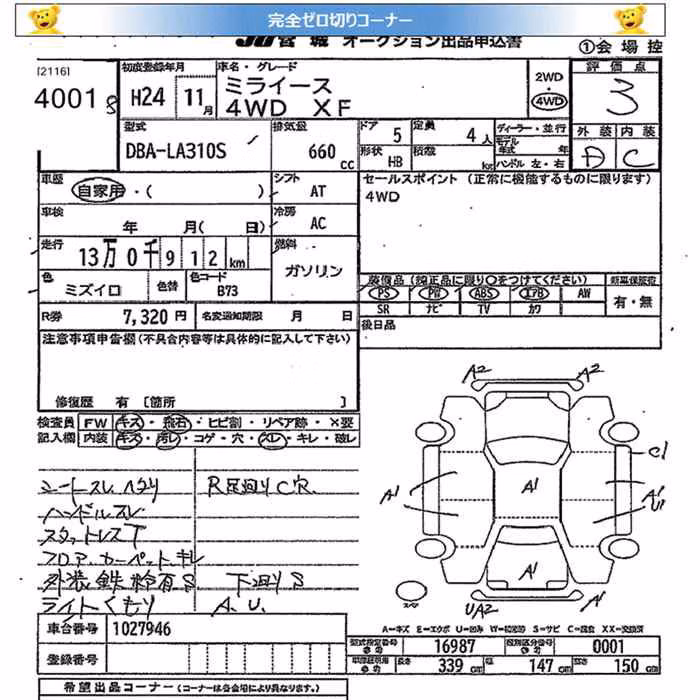 完全ゼロ切りコーナー
JU宮城 オークション出品申込書
①会場控
[2116]
4001 S
初度登録年月
H24 11月
車名・グレード
ミライース
4WD XF
2WD
・
4WD
評価点
3
外装 内装
D C
型式
DBA-LA310S
排気量
660 cc
ドア 5
定員 4人
形状 HB
積載 kg
ディーラー・並行
モデル年式 年
ハンドル 左・右
車歴
自家用・( )
シフト AT
セールスポイント (正常に機能するものに限ります)
4WD
車検
年 月( 日)
冷房 AC
走行
13万0千912km
燃料
ガソリン
色
ミズイロ
色替
色コード
B73
装備品(純正品に限り○をつけてください)
新車保証書
PS PW ABS エアB AW
SR ナビ TV カワ
有・無
R券 7,320円
名変通知期限 月 日
後日品
注意事項申告欄(不具合内容等は具体的に記入して下さい)
修復歴 有 〔箇所 〕
検査員 FW キズ・飛石・ヒビ割・リペア跡・×要
記入欄 内装 キズ・汚レ・コゲ・穴・スレ・キレ・破レ
シートスレ ヘタリ
R足廻り C R.
ハンドルスレ
スタットレス T
フロアカーペットキレ
外装鉄粉有 S 下廻り S
ライトくもり A. U.
A2 A2
C1
A1 A1 A1
A1 A1 U1
A1
UA2
スペア
A=キズ E=エクボ U=凹み W=補修跡 S=サビ C=腐食 XX=交換済
車台番号 1027946
登録番号
型式指定番号 16987
類別区分番号 0001
長さ 339 cm
幅 147 cm
高さ 150 cm
希望出品コーナー (コーナーは各会場により異なります。)